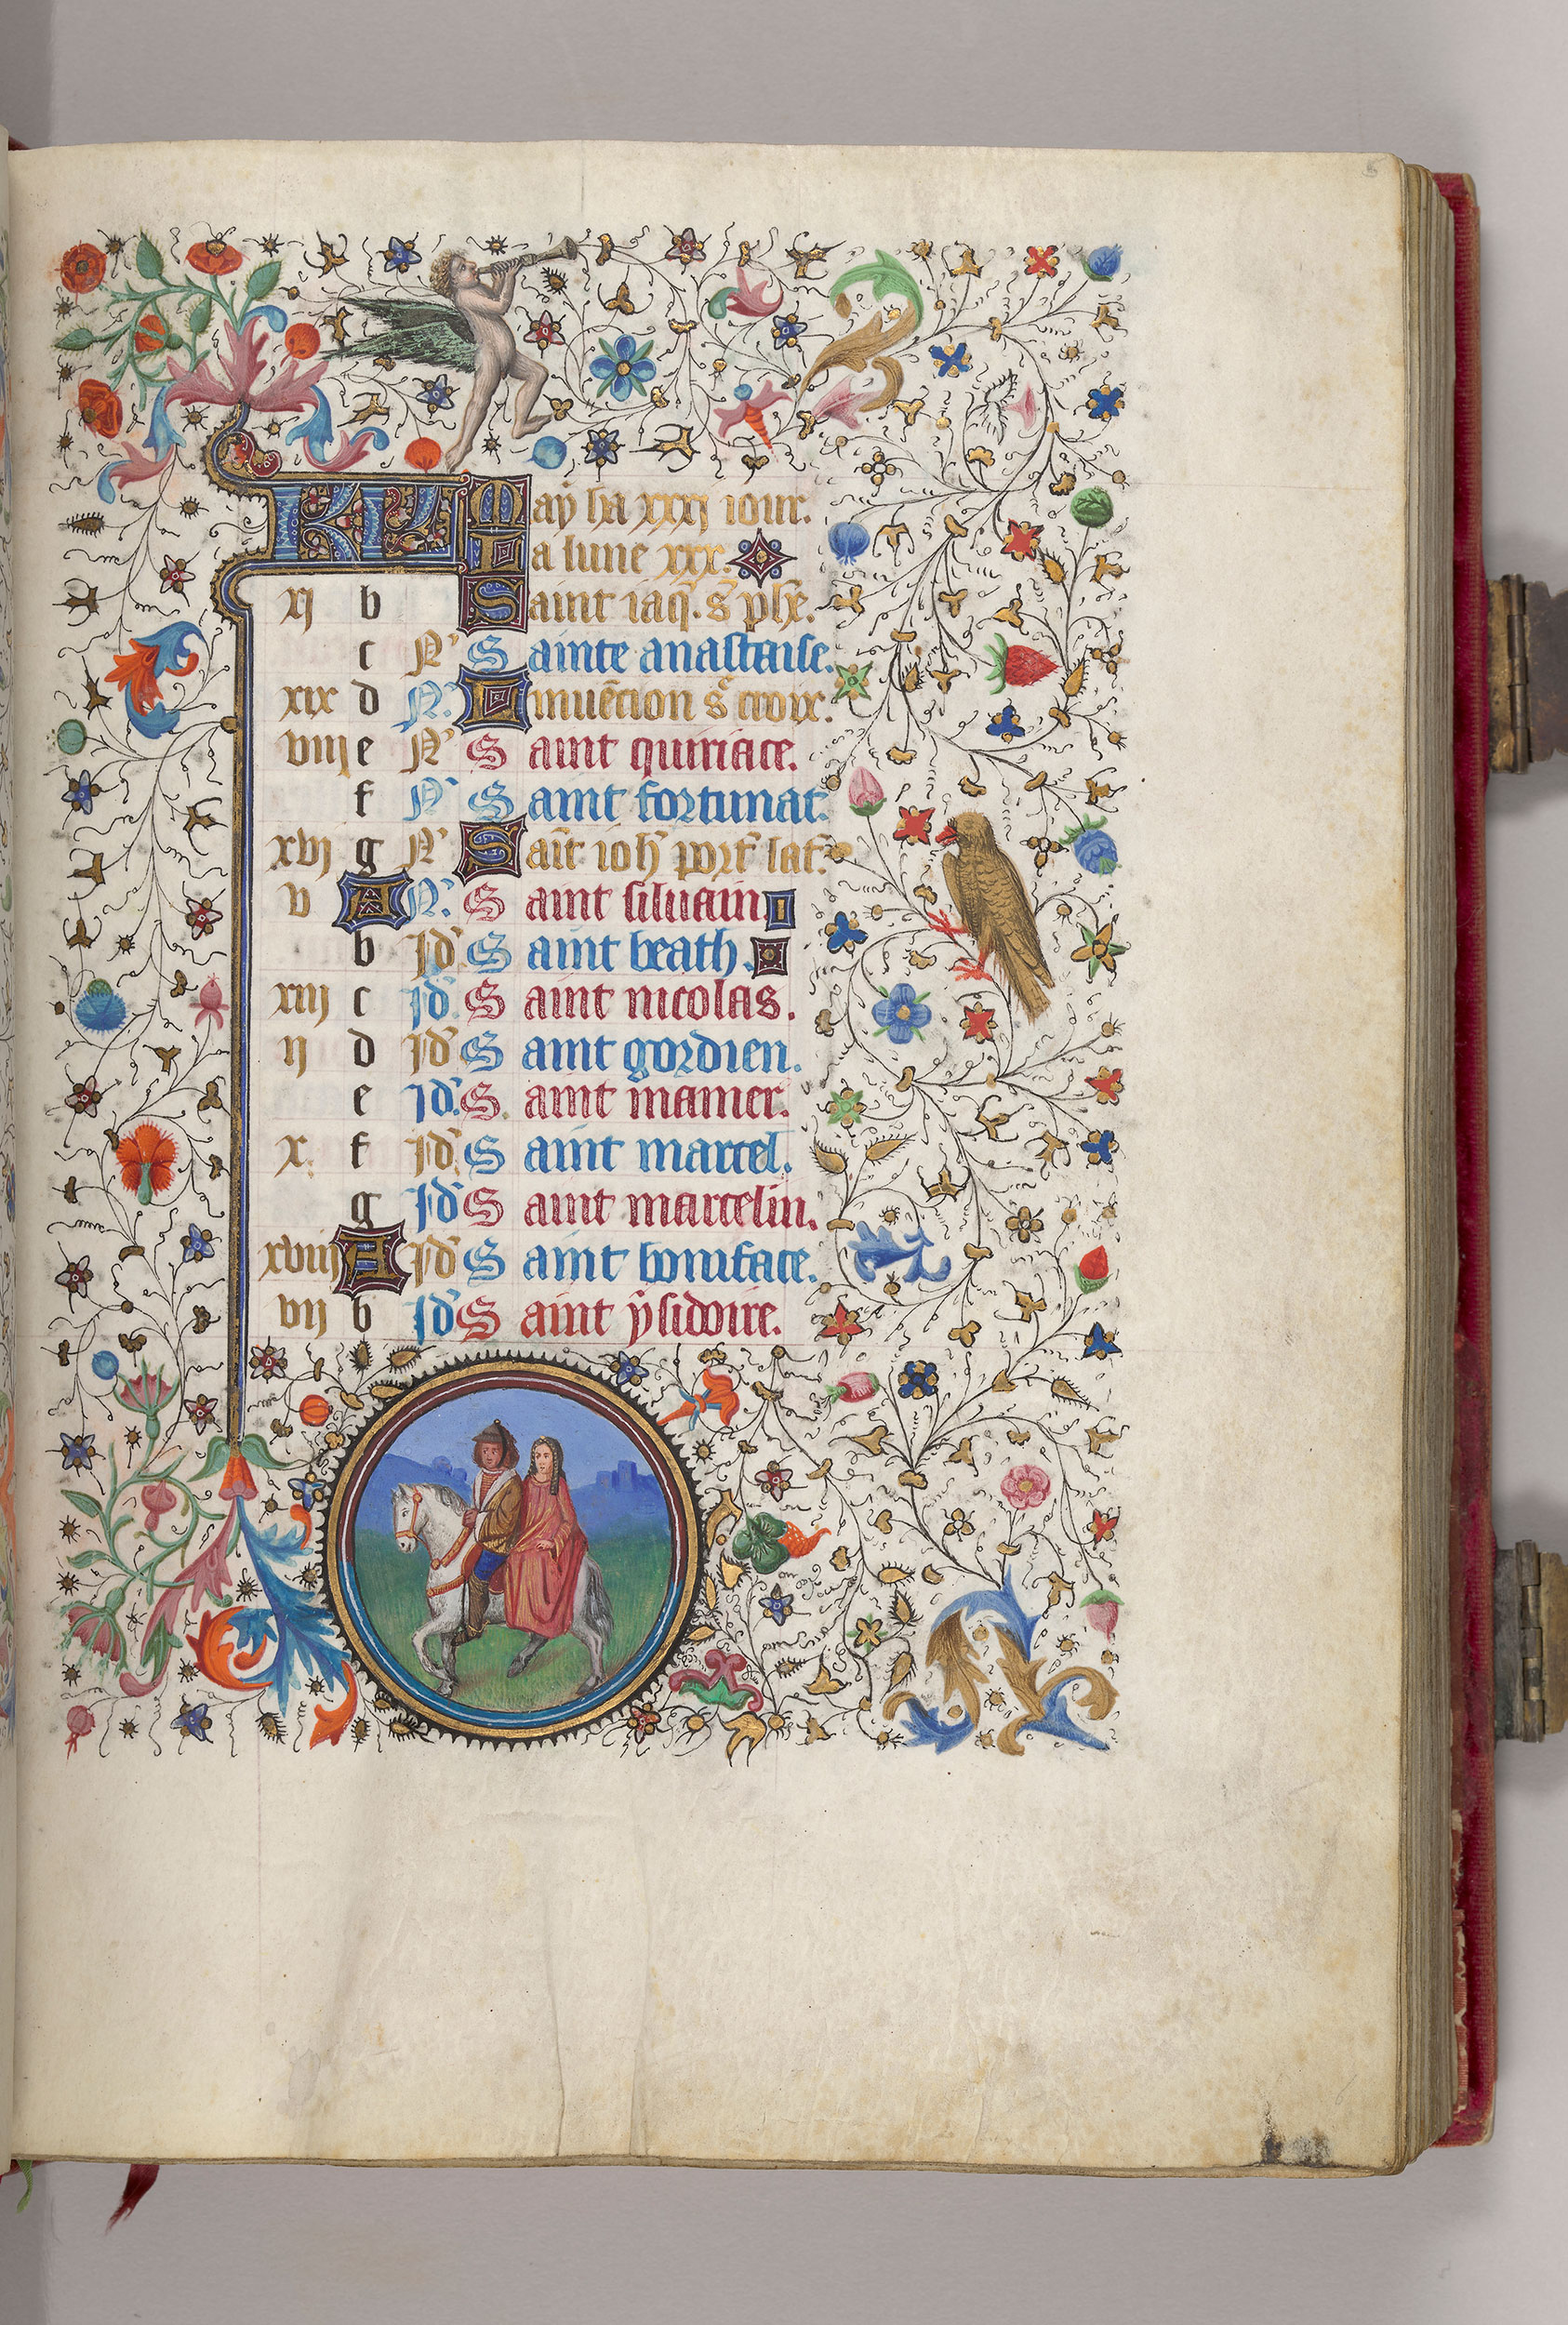 KL May ha xxxj iour.
La lune xxx.
xj b Saint iaq̃. s̃ ph̃e.
c N' Sainte anastaise.
xix d N. Linuẽcion s̃ croix.
viij e N' Saint quiriace.
f N' Saint fortunat.
xvj g N' Sait̃ ioh̃ port̃ lat̃
v A N. Saint siluain.
b Jd' Saint beath.
xiij c Jd' Saint nicolas.
ij d Jd' Saint gordien.
e Jd' Saint mamer.
x. f Jd' Saint marcel.
g Jd' Saint marcelin.
xviij A Jd' Saint boniface.
vij b Jd' Saint ẏsidoire.